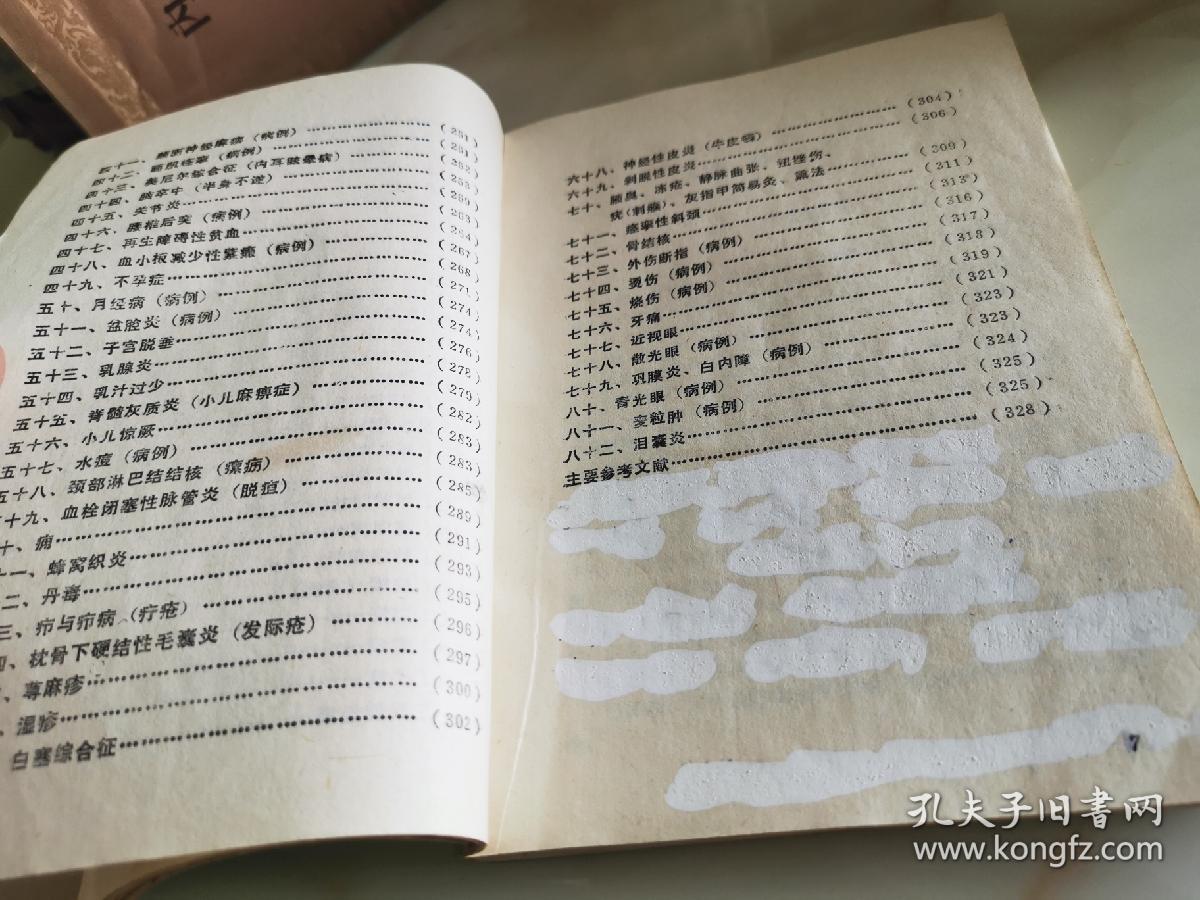 四十一、颜面神经麻痹(病例)…………(251)
四十二、腓肌痉挛(病例)…………(251)
四十三、美尼尔综合征(内耳眩晕病)…………(252)
四十四、脑卒中(半身不遂)…………(253)
四十五、关节炎…………(259)
四十六、腰椎后突(病例)…………(263)
四十七、再生障碍性贫血…………(264)
四十八、血小板减少性紫癜(病例)…………(267)
四十九、不孕症…………(268)
五十、月经病(病例)…………(271)
五十一、盆腔炎(病例)…………(274)
五十二、子宫脱垂…………(274)
五十三、乳腺炎…………(276)
五十四、乳汁过少…………(278)
五十五、脊髓灰质炎(小儿麻痹症)…………(279)
五十六、小儿惊厥…………(282)
五十七、水痘(病例)…………(283)
五十八、颈部淋巴结结核(瘰疬)…………(283)
十九、血栓闭塞性脉管炎(脱疽)…………(285)
十、痈…………(289)
十一、蜂窝织炎…………(291)
二、丹毒…………(293)
三、疖与疖病(疔疮)…………(295)
四、枕骨下硬结性毛囊炎(发际疮)…………(296)
、荨麻疹…………(297)
、湿疹…………(300)
白塞综合征…………(302)
六十八、神经性皮炎(牛皮癣)…………(304)
六十九、剥脱性皮炎…………(306)
七十、腋臭、冻疮、静脉曲张、扭挫伤、
疣(刺瘊)、灰指甲简易灸、熏法…………(309)
七十一、痉挛性斜颈…………(311)
七十二、骨结核…………(313)
七十三、外伤断指(病例)…………(316)
七十四、烫伤(病例)…………(317)
七十五、烧伤(病例)…………(318)
七十六、牙痛…………(319)
七十七、近视眼…………(321)
七十八、散光眼(病例)…………(323)
七十九、巩膜炎、白内障(病例)…………(323)
八十、青光眼(病例)…………(324)
八十一、麦粒肿(病例)…………(325)
八十二、泪囊炎…………(325)
主要参考文献…………(328)
7
孔夫子旧书网
www.kongfz.com